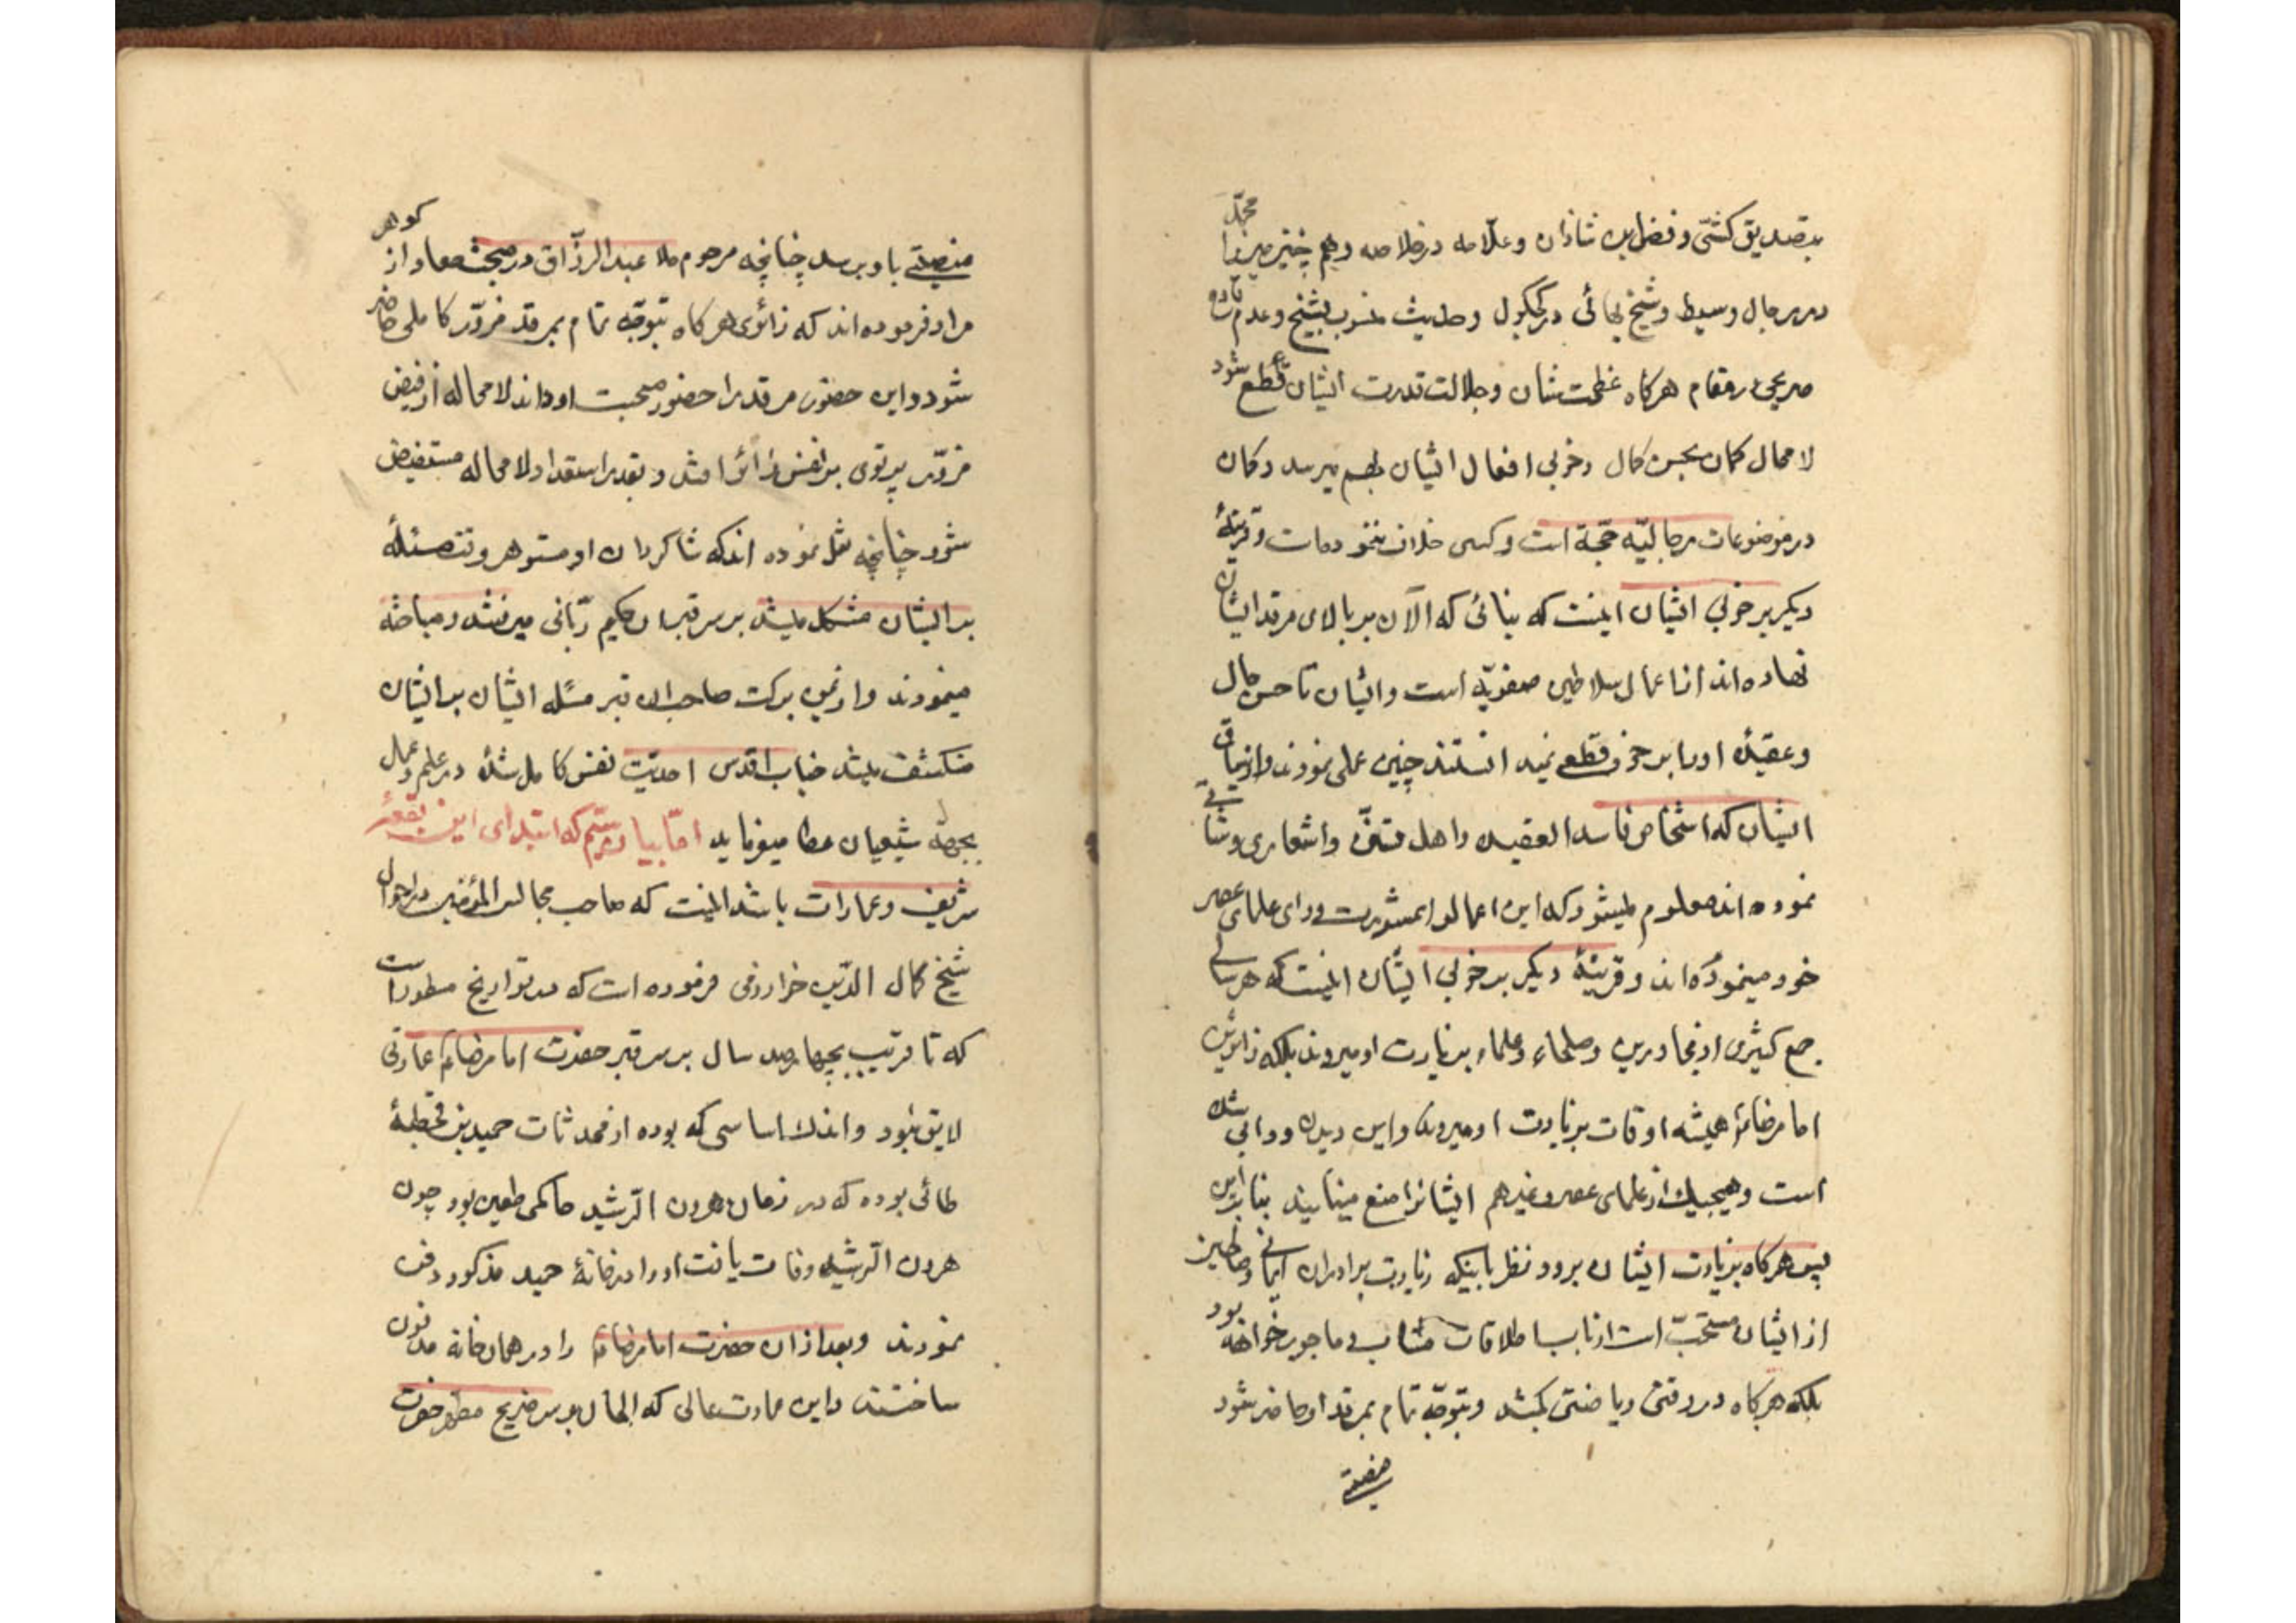 بتصدیق کشّی و فضل بن شاذان و علّامه در خلاصه و هم چنین میرزا محمّد
در رجال وسیط و شیخ بهائی در کشکول و حدیث منسوب بشیخ و عدم
صریحی در مقام هرکاه عظمت شان و جلالت قدرت ایشان قطع شود
لا محال کمان بحسن کمال و خوبی افعال ایشان بهم میرسد و کمان
در موضوعات رجالیّه حجّة است و کسی خلاف ننموده است و قرینهٔ
دیکر بر خوبی ایشان اینست که بنائی که الآن بر بالای مرقد ایشان
نهاده اند از اعمال سلاطین صفویّه است و ایشان تا حسن حال
و عقیدهٔ او را بر خود قطع نمیدانستند چنین عملی نمودند و از
ایشان که اشخاص فاسد العقیده و اهل و اشعاری و
نموده اند معلوم میشود که این اعمال را بمشورت و رای علمای عصر
خود مینموده اند و قرینهٔ دیکر بر خوبی ایشان اینست که هر سالی
جمع کثیری از مجاورین و صلحاء و علماء بزیارت او میروند بلکه زائرین
امام رضا ع همیشه اوقات بزیارت او میروند و این دیدن و دأبی شده
است و هیچیک از علمای عصر و غیرهم ایشانرا منع مینمایند بنا براین
پس هرکاه بزیارت ایشان برود نظر باینکه زیارت برادران ایمانی و صالحین
از ایشان مستحبّ است از باب ملاقات مثاب و ماجور خواهد بود
بلکه هرکاه در رفتن ریاضتی بکشد و بتوجّه تمام بمرقد او حاضر شود
فیضی
فیضی باو برسد چنانچه مرحوم ملا عبد الرزّاق در مبحث معاد از کوهر
مراد فرموده اند که زائری هرکاه بتوجّه تمام بمرقد مزوّر کاملی حاضر
شود و این حضور مرقد را حضور صحبت او داند لا محاله از فیض
مزوّر پرتوی بر نفس زائر افتد و بقدر استعداد لا محاله مستفیض
شود چنانچه نقل نموده اند که شاکردان ارسطو هر وقت مسئلهٔ
بر ایشان مشکل میشد بر سر قبر ان حکیم ربّانی میرفتند و مباحثه
مینمودند و از یمن برکت صاحب ان قبر مسئله ایشان بر ایشان
منکشف میشد جناب اقدس احدیّت نفس کامل شدهٔ در علم و عمل
بجهة شیعیان عطا میفرماید امّا بیان ستّم که ابتدای این بقعهٔ
شریف و عمارات باشد اینست که صاحب مجالس المؤمنین در احوال
شیخ کمال الدّین خوارزمی فرموده است که در تواریخ مسطور است
که تا قریب بچهارصد سال بر سر قبر حضرت امام رضا ع عمارتی
لایق نبود و اندک اساسی که بوده از محدثات حمید بن قحطبهٔ
طائی بوده که در زمان هرون الرّشید حاکمی طوس بود چون
هرون الرّشید وفات یافت او را در خانهٔ حمید مذکور دفن
نمودند و بعد از ان حضرت امام رضا ع را در همان خانه مدفون
ساختند و این عمارت عالی که الحال بر سر ضریح مطهر حضرت